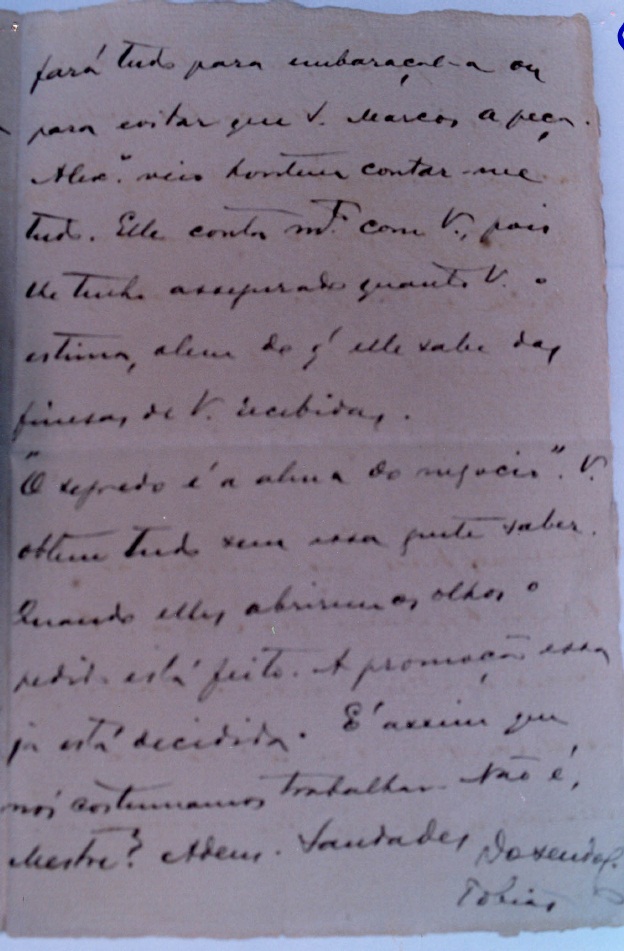 fará tudo para embaraçal-a ou
para evitar que V. Marcos a peça.
Alex.e veio hontem contar-me
tudo. Elle conta m.to com V., pois
lhe tenho assegurado quanto V. o
estima, alem do q' elle sabe das
finesas de V. recebidas.
"O segredo é a alma do negocio". V.
obtem tudo sem essa gente saber.
Quando elles abrirem os olhos o
pedido está feito. A promoção essa
ja está decidida. E' assim que
nós costumamos trabalhar. Não é,
Mestre? Adeus. Saudades
Tobias